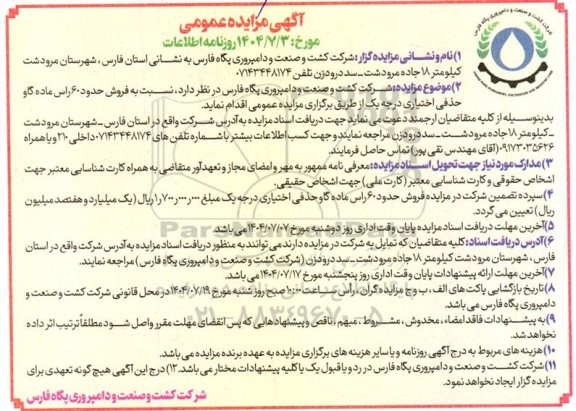 آگهی مزایده عمومی
مورخ: ۱۴۰۴/۷/۳ روزنامه اطلاعات
شرکت کشت و صنعت و دامپروری پگاه فارس
۱) نام و نشانی مزایده گزار: شرکت کشت و صنعت و دامپروری پگاه فارس به نشانی استان فارس، شهرستان مرودشت
کیلومتر ۱۸ جاده مرودشت ـ سد درودزن تلفن ۰۷۱۴۳۴۴۸۱۷۴
۲) موضوع مزایده: شرکت کشت و صنعت و دامپروری پگاه فارس در نظر دارد، نسبت به فروش حدود ۶۰ راس ماده گاو
حذفی اختیاری درجه یک از طریق برگزاری مزایده عمومی اقدام نماید.
بدینوسیله از کلیه متقاضیان ارجمند دعوت می نماید جهت دریافت اسناد مزایده به آدرس شرکت واقع در استان فارس ـ شهرستان مرودشت
ـ کیلومتر ۱۸ جاده مرودشت ـ سد درودزن مراجعه نمایند و جهت کسب اطلاعات بیشتر با شماره تلفن های ۰۷۱۴۳۴۴۸۱۷۴ داخلی ۲۱۰ و یا همراه
۰۹۱۷۳۰۳۵۶۲۶ (آقای مهندس نقی پور) تماس حاصل فرمایند.
۳) مدارک مورد نیاز جهت تحویل اسناد مزایده: معرفی نامه ممهور به مهر و امضای مجاز و تعهدآور متقاضی به همراه کارت شناسایی معتبر جهت
اشخاص حقوقی و کارت شناسایی معتبر (کارت ملی) جهت اشخاص حقیقی.
۴) سپرده تضمین شرکت در مزایده فروش حدود ۶۰ راس ماده گاو حذفی اختیاری درجه یک مبلغ ۱/۷۰۰/۰۰۰/۰۰۰ ریال (یک میلیارد و هفتصد میلیون
ریال) تعیین می گردد.
۵) آخرین مهلت دریافت اسناد مزایده پایان وقت اداری روز دوشنبه مورخ ۱۴۰۴/۰۷/۰۷ می باشد.
۶) آدرس دریافت اسناد: کلیه متقاضیان که تمایل به شرکت در مزایده دارند می توانند به منظور دریافت اسناد مزایده به آدرس شرکت واقع در استان
فارس، شهرستان مرودشت کیلومتر ۱۸ جاده مرودشت ـ سد درودزن (شرکت کشت و صنعت و دامپروری پگاه فارس) مراجعه نمایند.
۷) آخرین مهلت ارائه پیشنهادات پایان وقت اداری روز پنجشنبه مورخ ۱۴۰۴/۰۷/۱۷ می باشد.
۸) تاریخ بازگشایی پاکت های الف، ب و ج مزایده گران، راس ساعت ۱۰:۰۰ صبح روز شنبه مورخ ۱۴۰۴/۰۷/۱۹ در محل قانونی شرکت کشت و صنعت و
دامپروری پگاه فارس می باشد.
۹) به پیشنهادات فاقد امضاء، مخدوش، مشروط، مبهم، ناقص و پیشنهادهایی که پس انقضای مهلت مقرر واصل شود مطلقاً ترتیب اثر داده
نخواهد شد.
۱۰) هزینه های مربوط به درج آگهی روزنامه و یا سایر هزینه های برگزاری مزایده به عهده برنده مزایده می باشد.
۱۱) شرکت کشت و صنعت و دامپروری پگاه فارس در رد و یا قبول یک یا کلیه پیشنهادات مختار می باشد. ۱۲) درج این آگهی هیچ گونه تعهدی برای
مزایده گزار ایجاد نخواهد نمود.
شرکت کشت و صنعت و دامپروری پگاه فارس
۰۲۱-۸۸۳۴۹۶۷۰-۵